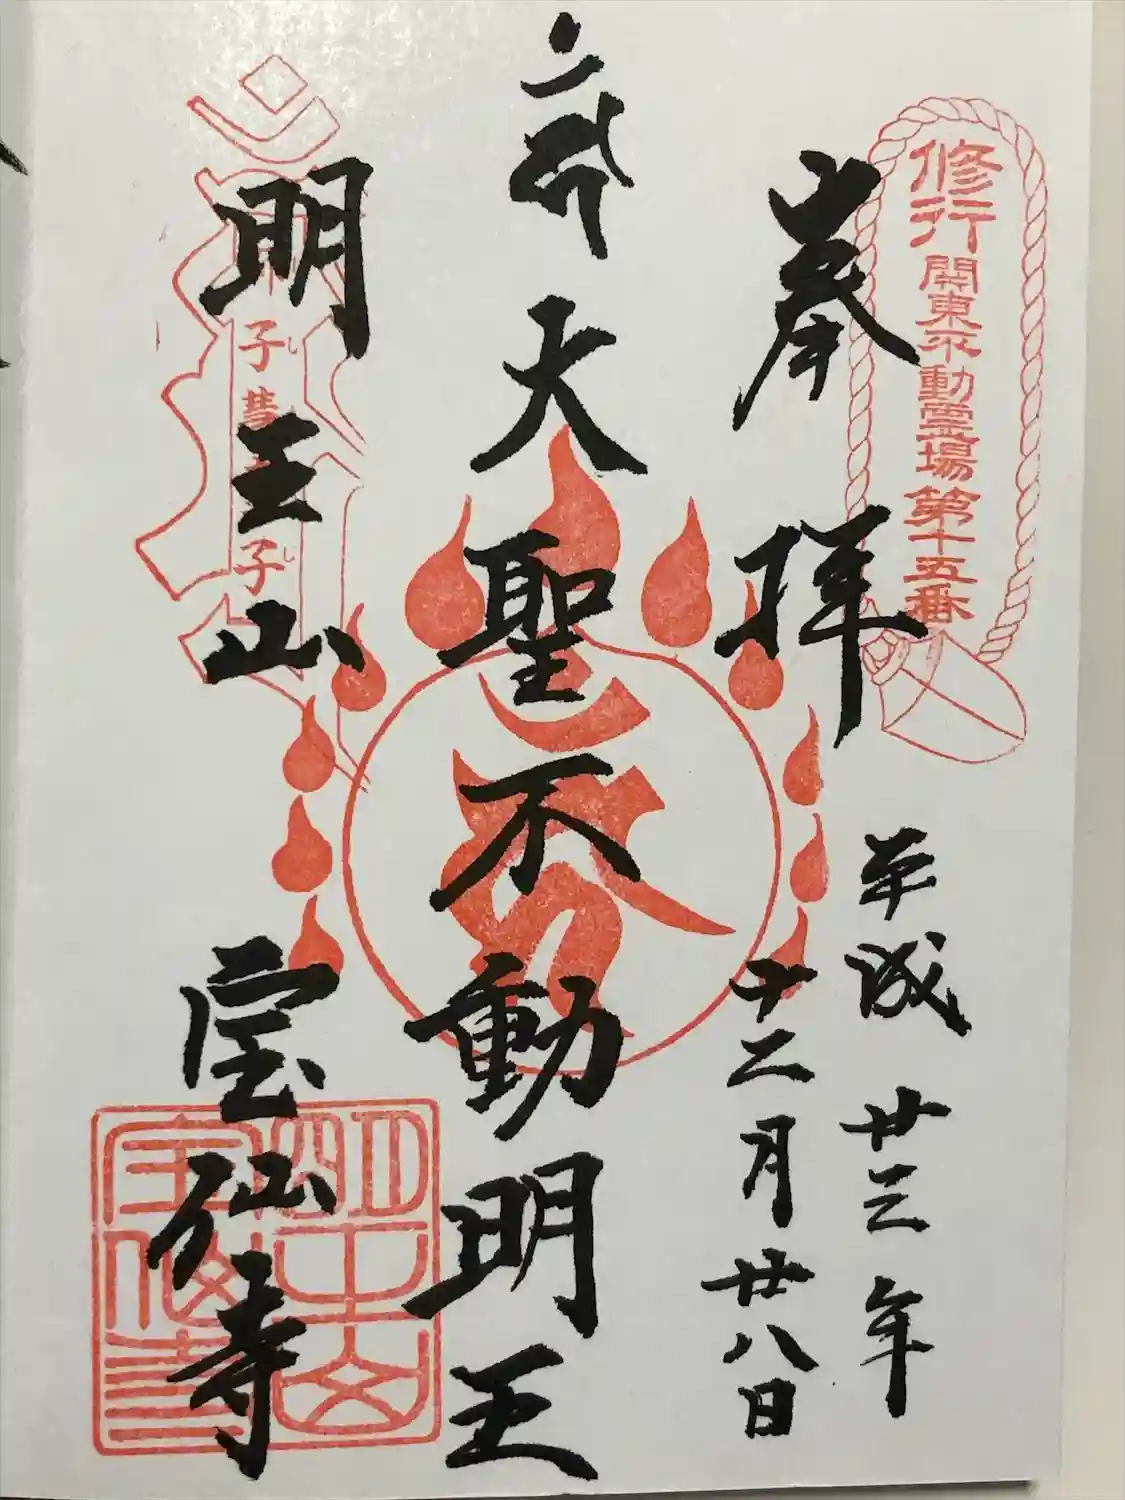 修行関東不動霊場第十五番
奉拝
平成廿三年
十二月廿八日
大聖不動明王
明王山
宝仙寺
明王山
宝仙寺